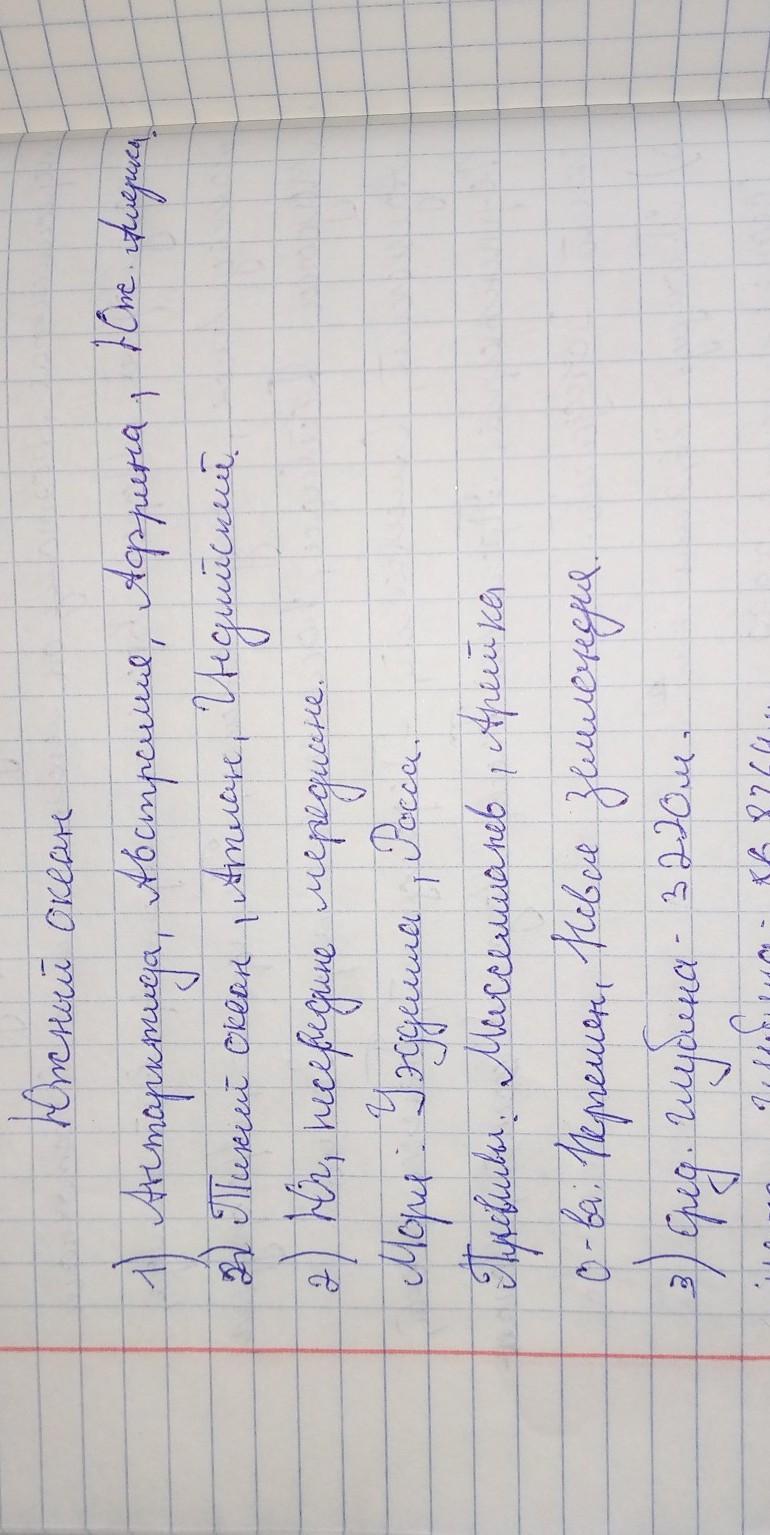 Южный океан
1) Антарктида, Австралия, Африка, Юж. Америка.
2) Тихий океан, Атлан, Индийский.
2) Юг, посередине меридиане.
Моря: Уэдделла, Росса.
Проливы: Магелланов, Дрейка
О-ва: Новое
3) Сред. глубина - 3220м.